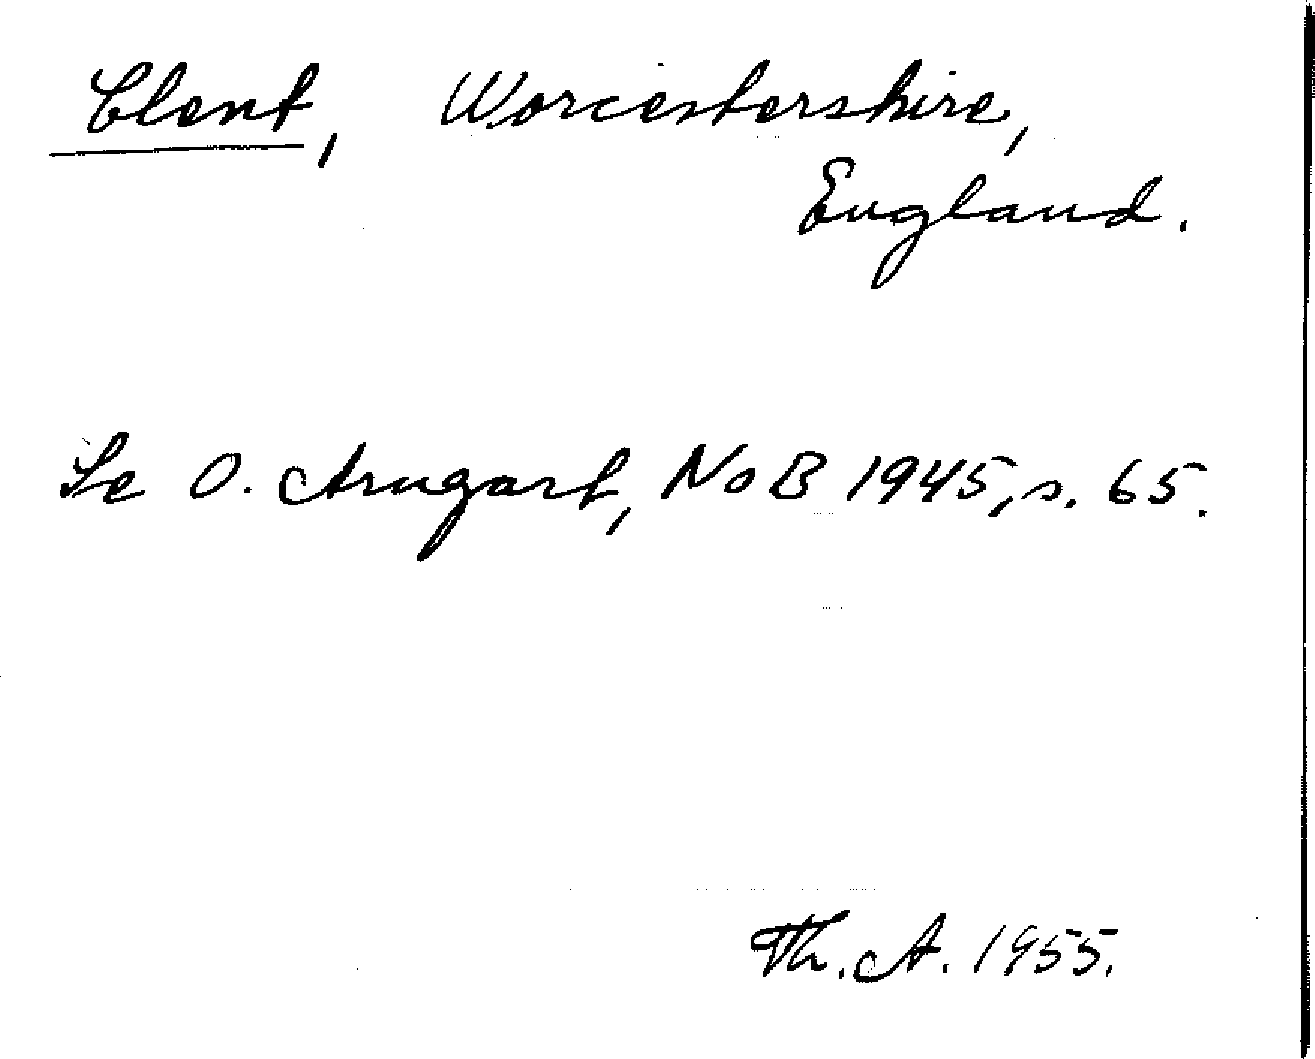 Clent, Worcestershire,
England.
Se O. Arngart, NoB 1945, s. 65.
Th. A. 1955.